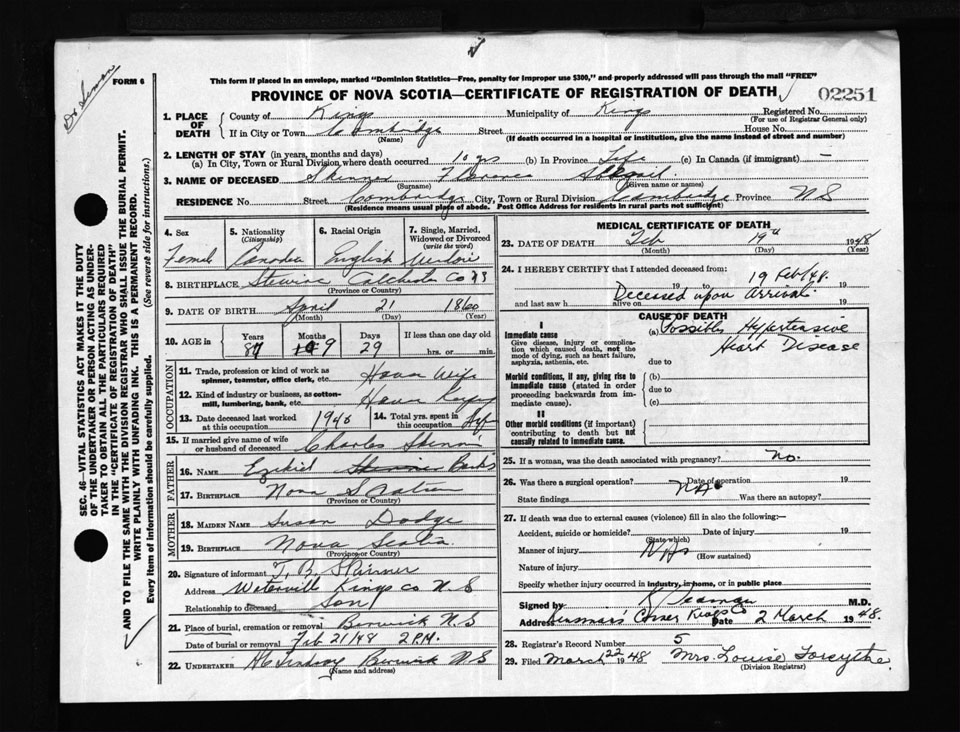 Dr Seaman
FORM 6
This form if placed in an envelope, marked "Dominion Statistics—Free, penalty for improper use $300," and properly addressed will pass through the mail "FREE"
PROVINCE OF NOVA SCOTIA—CERTIFICATE OF REGISTRATION OF DEATH
02251
1. PLACE OF DEATH
County of Kings Municipality of Kings Registered No.
(For use of Registrar General only)
If in City or Town Cambridge Street House No.
(Name) (If death occurred in a hospital or institution, give the name instead of street and number)
2. LENGTH OF STAY (in years, months and days)
(a) In City, Town or Rural Division, where death occurred 10 yrs (b) In Province Life (c) In Canada (if immigrant) —
3. NAME OF DECEASED Skinner Florence Abigail
(Surname) (Given name or names)
RESIDENCE No. Street Cambridge City, Town or Rural Division Cambridge Province NS
(Residence means usual place of abode. Post Office Address for residents in rural parts not sufficient)
4. Sex
Female
5. Nationality (Citizenship)
Canadian
6. Racial Origin
English
7. Single, Married, Widowed or Divorced (write the word)
8. BIRTHPLACE Colchester Co NS
(Province or Country)
9. DATE OF BIRTH April 21 1860
(Month) (Day) (Year)
10. AGE in
Years 87
Months 9
Days 29
If less than one day old
hrs. or min.
OCCUPATION
11. Trade, profession or kind of work as spinner, teamster, office clerk, etc. House Wife
12. Kind of industry or business, as cotton-mill, lumbering, bank, etc. House
13. Date deceased last worked at this occupation 1946
14. Total yrs. spent in this occupation
15. If married give name of wife or husband of deceased Charles Skinner
FATHER
16. NAME Ezekiel Banks
17. BIRTHPLACE Nova Scotia
(Province or Country)
MOTHER
18. MAIDEN NAME Susan Dodge
19. BIRTHPLACE Nova Scotia
(Province or Country)
20. Signature of informant T. B. Skinner
Address Waterville Kings Co N.S
Relationship to deceased Son
21. Place of burial, cremation or removal Berwick N.S
Date of burial or removal Feb 21/48 2 P.M.
22. UNDERTAKER Berwick N.S
(Name and address)
MEDICAL CERTIFICATE OF DEATH
23. DATE OF DEATH Feb 19th 1948
(Month) (Day) (Year)
24. I HEREBY CERTIFY that I attended deceased from:
19 Feb/48.
19 to 19
and last saw h alive on 19
Deceased upon Arrival
CAUSE OF DEATH
I
Immediate cause
Give disease, injury or complication which caused death, not the mode of dying, such as heart failure, asphyxia, asthenia, etc.
(a) Possible Hypertensive
Heart Disease
due to
Morbid conditions, if any, giving rise to immediate cause (stated in order proceeding backwards from immediate cause).
(b)
due to
(c)
II
Other morbid conditions (if important) contributing to death but not causally related to immediate cause.
25. If a woman, was the death associated with pregnancy? no.
26. Was there a surgical operation? No Date of operation 19
State findings Was there an autopsy?
27. If death was due to external causes (violence) fill in also the following:—
Accident, suicide or homicide? Date of injury 19
(State which)
Manner of injury
(How sustained)
Nature of injury
Specify whether injury occurred in industry, in home, or in public place
Signed by Seaman M.D.
Address Corner Kings Co Date 2 March 1948.
28. Registrar's Record Number 5
29. Filed March 22 1948 Mrs. Louise Forsythe
(Division Registrar)
SEC. 46—VITAL STATISTICS ACT MAKES IT THE DUTY
OF THE UNDERTAKER OR PERSON ACTING AS UNDER-
TAKER TO OBTAIN ALL THE PARTICULARS REQUIRED
IN THE "CERTIFICATE OF REGISTRATION OF DEATH"
AND TO FILE THE SAME WITH THE DIVISION REGISTRAR WHO SHALL ISSUE THE BURIAL PERMIT.
WRITE PLAINLY WITH UNFADING INK. THIS IS A PERMANENT RECORD.
Every item of Information should be carefully supplied. (See reverse side for instructions.)